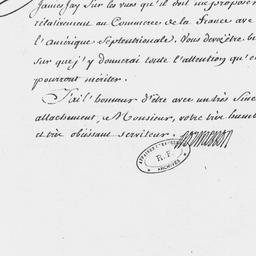 James Jay Sur les vues qu'il doit me proposer
rélativement au Commerce de la France ave
l'amérique Septentrionale. Vous devez être bi
sur que j'y donnerai toute l'attention qu'e
pourront mériter.
J'ai l'honneur d'être avec un très Sinc
attachement, Monsieur, votre très humb
et très obéissant serviteur.
R.F.
ARCHIVES